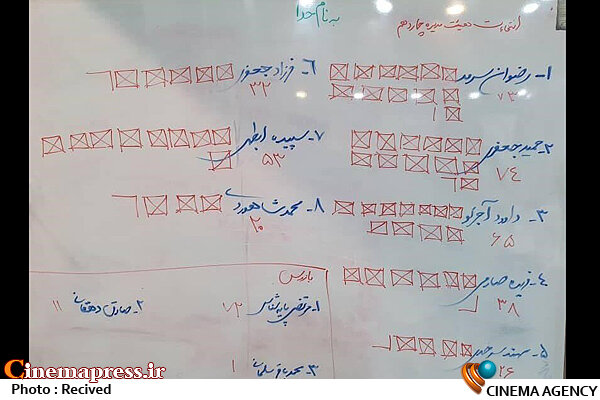 به نام خدا
انتخابات هیئت مدیره چهاردهم
۱- رضوان سرمد
۷۳
۲- حمید جعفری
۷۴
۳- داود آجرلو
۶۵
۴- فریده صارمی
۳۸
۵- سهند سرحدی
۲۶
۶- فرزاد جعفری
۳۲
۷- سپیده ابطحی
۵۳
۸- محمد شاهوردی
۲۰
بازرس
۱- مرتضی پایه‌شناس
۷۲
۲- صادق دهقان
۱۱
۳-
۱
Cinemapress.ir
Photo : Recived
CINEMA AGENCY